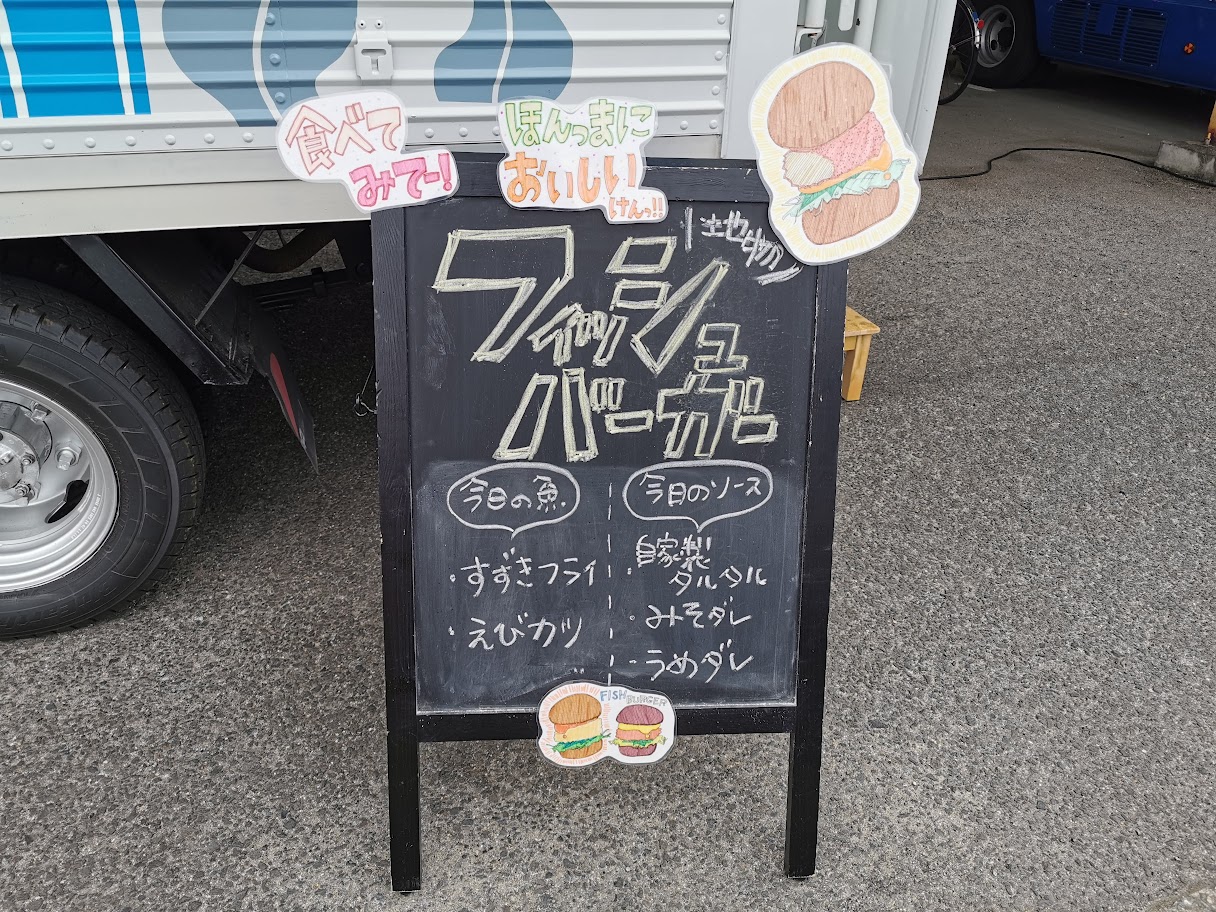 食べて
みてー!
ほんっまに
おいしい
けんっ!!
土地物
フィッシュ
バーガー
今日の魚
・すずきフライ
・えびカツ
今日のソース
・自家製
タルタル
・みそダレ
・うめダレ
FISH
BURGER